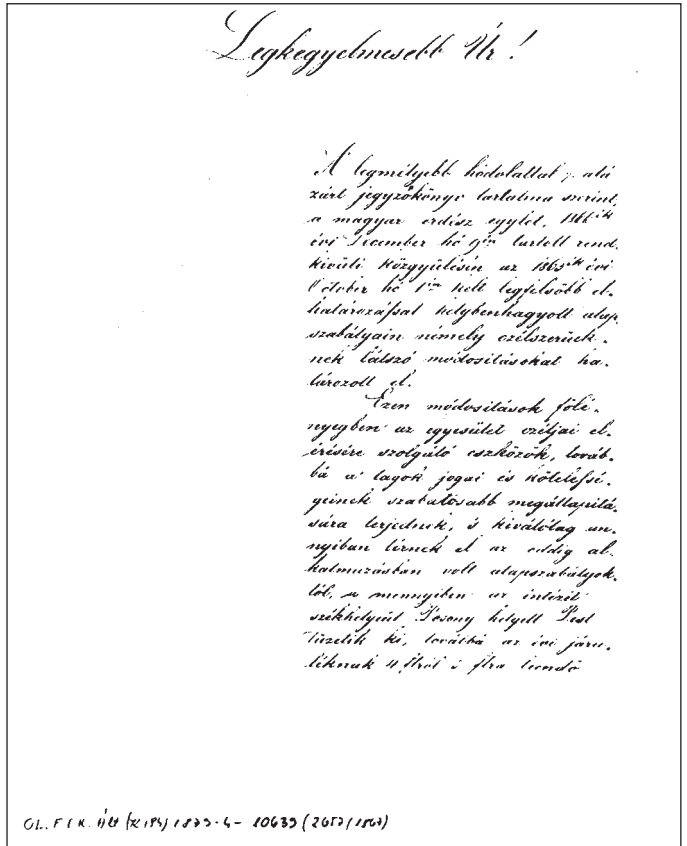 Legkegyelmesebb Úr!
A legmélyebb hódolattal ·/· alá
zárt jegyzőkönyv tartalma szerint,
a magyar erdész egylet, 1866ik
évi December hó 9én tartott rend.
kivüli közgyülésén az 1865ik évi
October hó 1én kelt legfelsőbb el.
határozással helybenhagyott alap.
szabályain némely czélszerüek.
nek látszó módositásokat ha.
tározott el.
Ezen módositások fölé.
nyegben az egyesület czéljai el.
érésére szolgáló eszközök, továb.
bá a' tagok jogai és kötelessé.
geinek szabatosabb megállapitá.
sára terjednek, s kiválólag an.
nyiban térnek el az eddig al.
kalmazásban volt alapszabályok.
tól, a mennyiben az intézet
székhelyéül Posony helyett Pest
tüzetik ki, továbbá az évi járu.
léknak 4 ftról 5 ftra leendő
OL. F.I.K. Ált (K 184) 1873-4- 10639 (2657/1867)